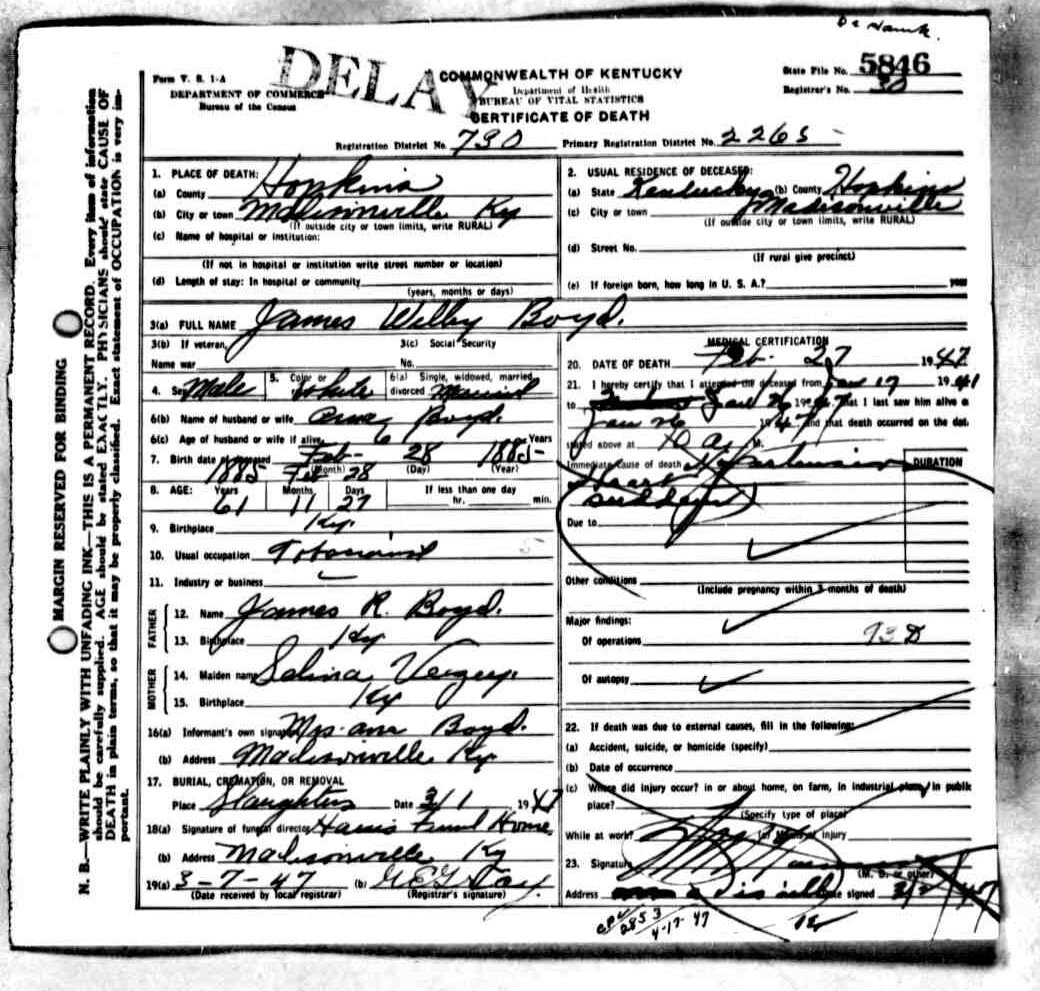 5846
Form V. S. 1-A
DELAY
COMMONWEALTH OF KENTUCKY
State File No. 5846
DEPARTMENT OF COMMERCE
Department of Health
Registrar's No. 30
Bureau of the Census
BUREAU OF VITAL STATISTICS
CERTIFICATE OF DEATH
Registration District No. 730 Primary Registration District No. 2265
N. B.—WRITE PLAINLY WITH UNFADING INK—THIS IS A PERMANENT RECORD. Every item of information
should be carefully supplied. AGE should be stated EXACTLY. PHYSICIANS should state CAUSE OF
DEATH in plain terms, so that it may be properly classified. Exact statement of OCCUPATION is very im-
portant.
MARGIN RESERVED FOR BINDING
1. PLACE OF DEATH:
(a) County Hopkins
(b) City or town Madisonville Ky
(If outside city or town limits, write RURAL)
(c) Name of hospital or institution:
(If not in hospital or institution write street number or location)
(d) Length of stay: In hospital or community
(years, months or days)
2. USUAL RESIDENCE OF DECEASED:
(a) State Kentucky (b) County Hopkins
(c) City or town Madisonville
(If outside city or town limits, write RURAL)
(d) Street No.
(If rural give precinct)
(e) If foreign born, how long in U. S. A.? year
3(a) FULL NAME James Wilby Boyd.
3(b) If veteran,
Name war
3(c) Social Security
No.
4. Sex Male 5. Color or White 6(a) Single, widowed, married, divorced Married
6(b) Name of husband or wife Boyd.
6(c) Age of husband or wife if alive 6 Years
7. Birth date of deceased Feb- 28 1885-
(Month) (Day) (Year)
1885 Feb 28
8. AGE: Years Months Days If less than one day
61 11 27 hr. min.
9. Birthplace Ky.
10. Usual occupation
11. Industry or business
FATHER
12. Name James R. Boyd.
13. Birthplace Ky
MOTHER
14. Maiden name Selina
15. Birthplace Ky
16(a) Informant's own signature Mrs. Ann Boyd.
(b) Address Madisonville Ky
17. BURIAL, CREMATION, OR REMOVAL
Place Slaughters Date 3/1 1947
18(a) Signature of funeral director Harris Funl Home
(b) Address Madisonville Ky
19(a) 3-7-47 (b)
(Date received by local registrar) (Registrar's signature)
MEDICAL CERTIFICATION
20. DATE OF DEATH Feb. 27 1947
21. I hereby certify that I attended the deceased from Jan 17 1941
to Jan 26 1947 that I last saw him alive o
Jan 26 1947 and that death occurred on the dat
stated above at M.
Immediate cause of death Hypertension
DURATION
Heart
Due to
Other conditions
(Include pregnancy within 3 months of death)
Major findings:
Of operations 93D
Of autopsy
22. If death was due to external causes, fill in the following:
(a) Accident, suicide, or homicide (specify)
(b) Date of occurrence
(c) Where did injury occur? in or about home, on farm, in industrial place, in public
place?
(Specify type of place)
While at work? (e) Means of injury
23. Signature
(M. D. or other)
Address Date signed 3/2 47
2853
4-17-47